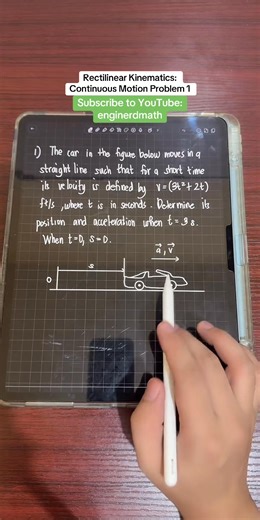 Rectilinear Kinematics:
Continuous Motion Problem 1
Subscribe to YouTube:
enginerdmath
1) The car in the figure below moves in a
straight line such that for a short time
its velocity is defined by v = (9t² + 2t)
ft/s, where t is in seconds. Determine its
position and acceleration when t = 3 s.
When t=0, s=0.
a, v
s
O